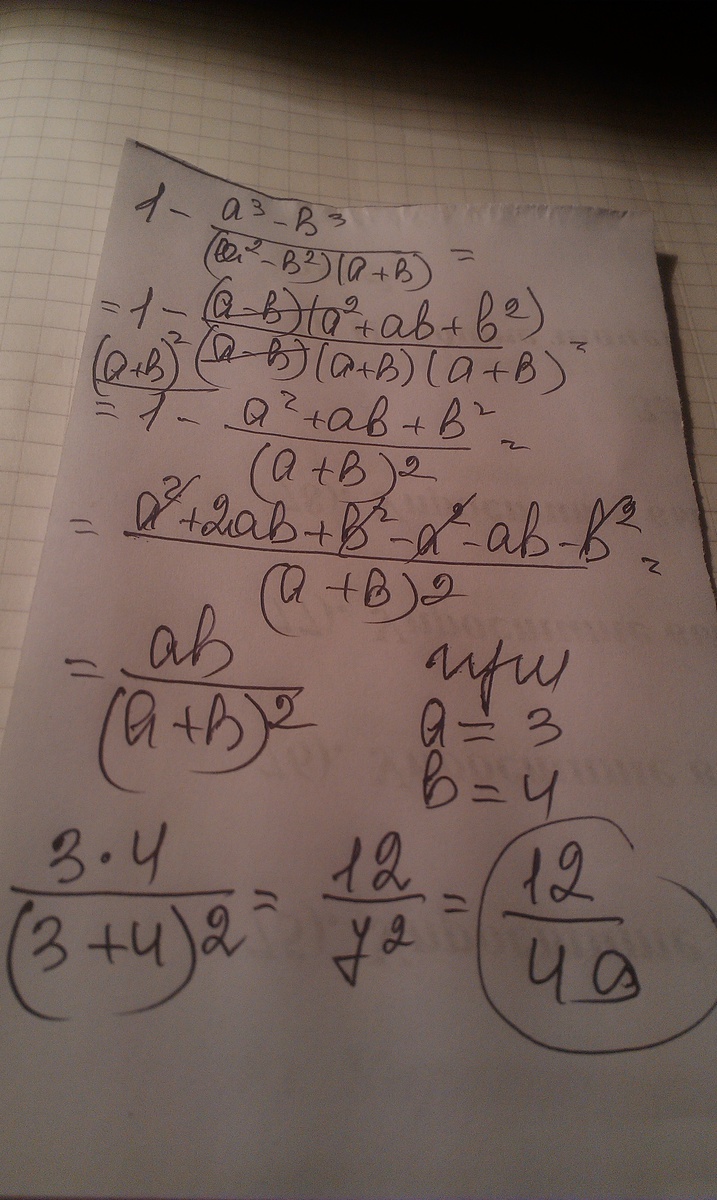 1 - (a³ - b³)/((a² - b²)(a + b)) =
= 1 - ((a - b)(a² + ab + b²))/((a - b)(a + b)(a + b)) =
(a + b)²
= 1 - (a² + ab + b²)/((a + b)²) =
= (a² + 2ab + b² - a² - ab - b²)/((a + b)²) =
= ab/((a + b)²) при
a = 3
b = 4
(3 · 4)/((3 + 4)²) = 12/7² = 12/49